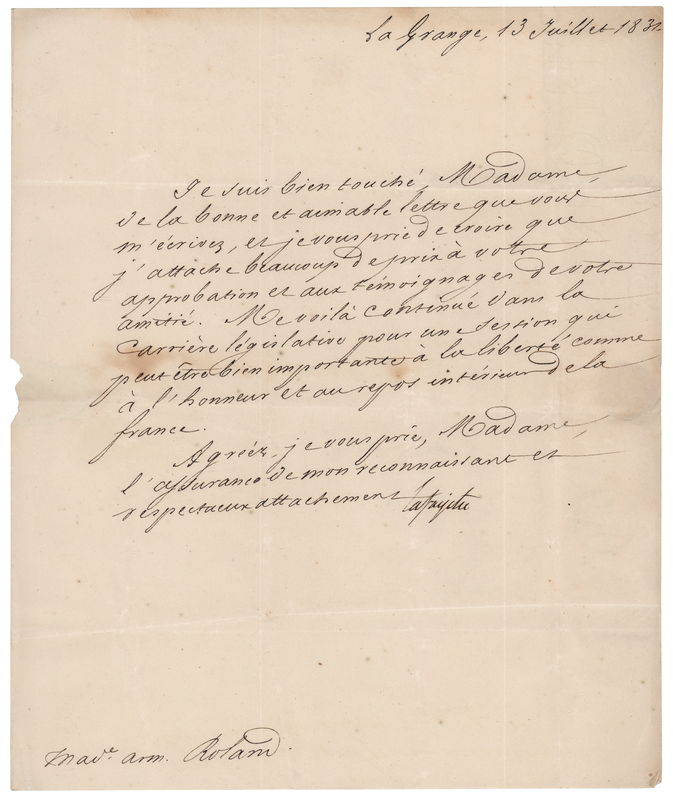 La Grange, 13 Juillet 1831.
Je suis bien touché, Madame,
de la bonne et aimable lettre que vous
m'écrivez, et je vous prie de croire que
j'attache beaucoup de prix à votre
approbation et aux témoignages de votre
amitié. Me voilà continué dans la
carrière législative pour une session qui
peut être bien importante à la liberté comme
à l'honneur et au repos intérieur de la
france.
Agréez, je vous prie, Madame,
l'assurance de mon reconnaissant et
respectueux attachement
Lafayette
Made. arm. Roland.